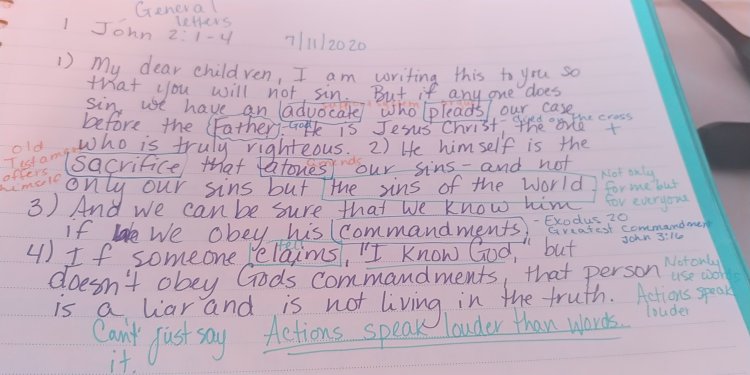 General
letters
1 John 2:1-4 7/11/2020
1) My dear children, I am writing this to you so
that you will not sin. But if any one does
sin, we have an advocate who pleads our case
before the Father. -God He is Jesus Christ, the one +
died on the cross
who is truly righteous. 2) He himself is the
Old
Testament
offers
himself
sacrifice that atones our sins - and not
only our sins but the sins of the world
Not only
for me but
for everyone
3) And we can be sure that we know him
if we obey his commandments
- Exodus 20
Greatest commandment
John 3:16
4) If someone claims, "I know God," but
tell
doesn't obey Gods commandments, that person
is a liar and is not living in the truth.
Not only
use words
Actions speak
louder
Can't just say Actions speak louder than words.
it.